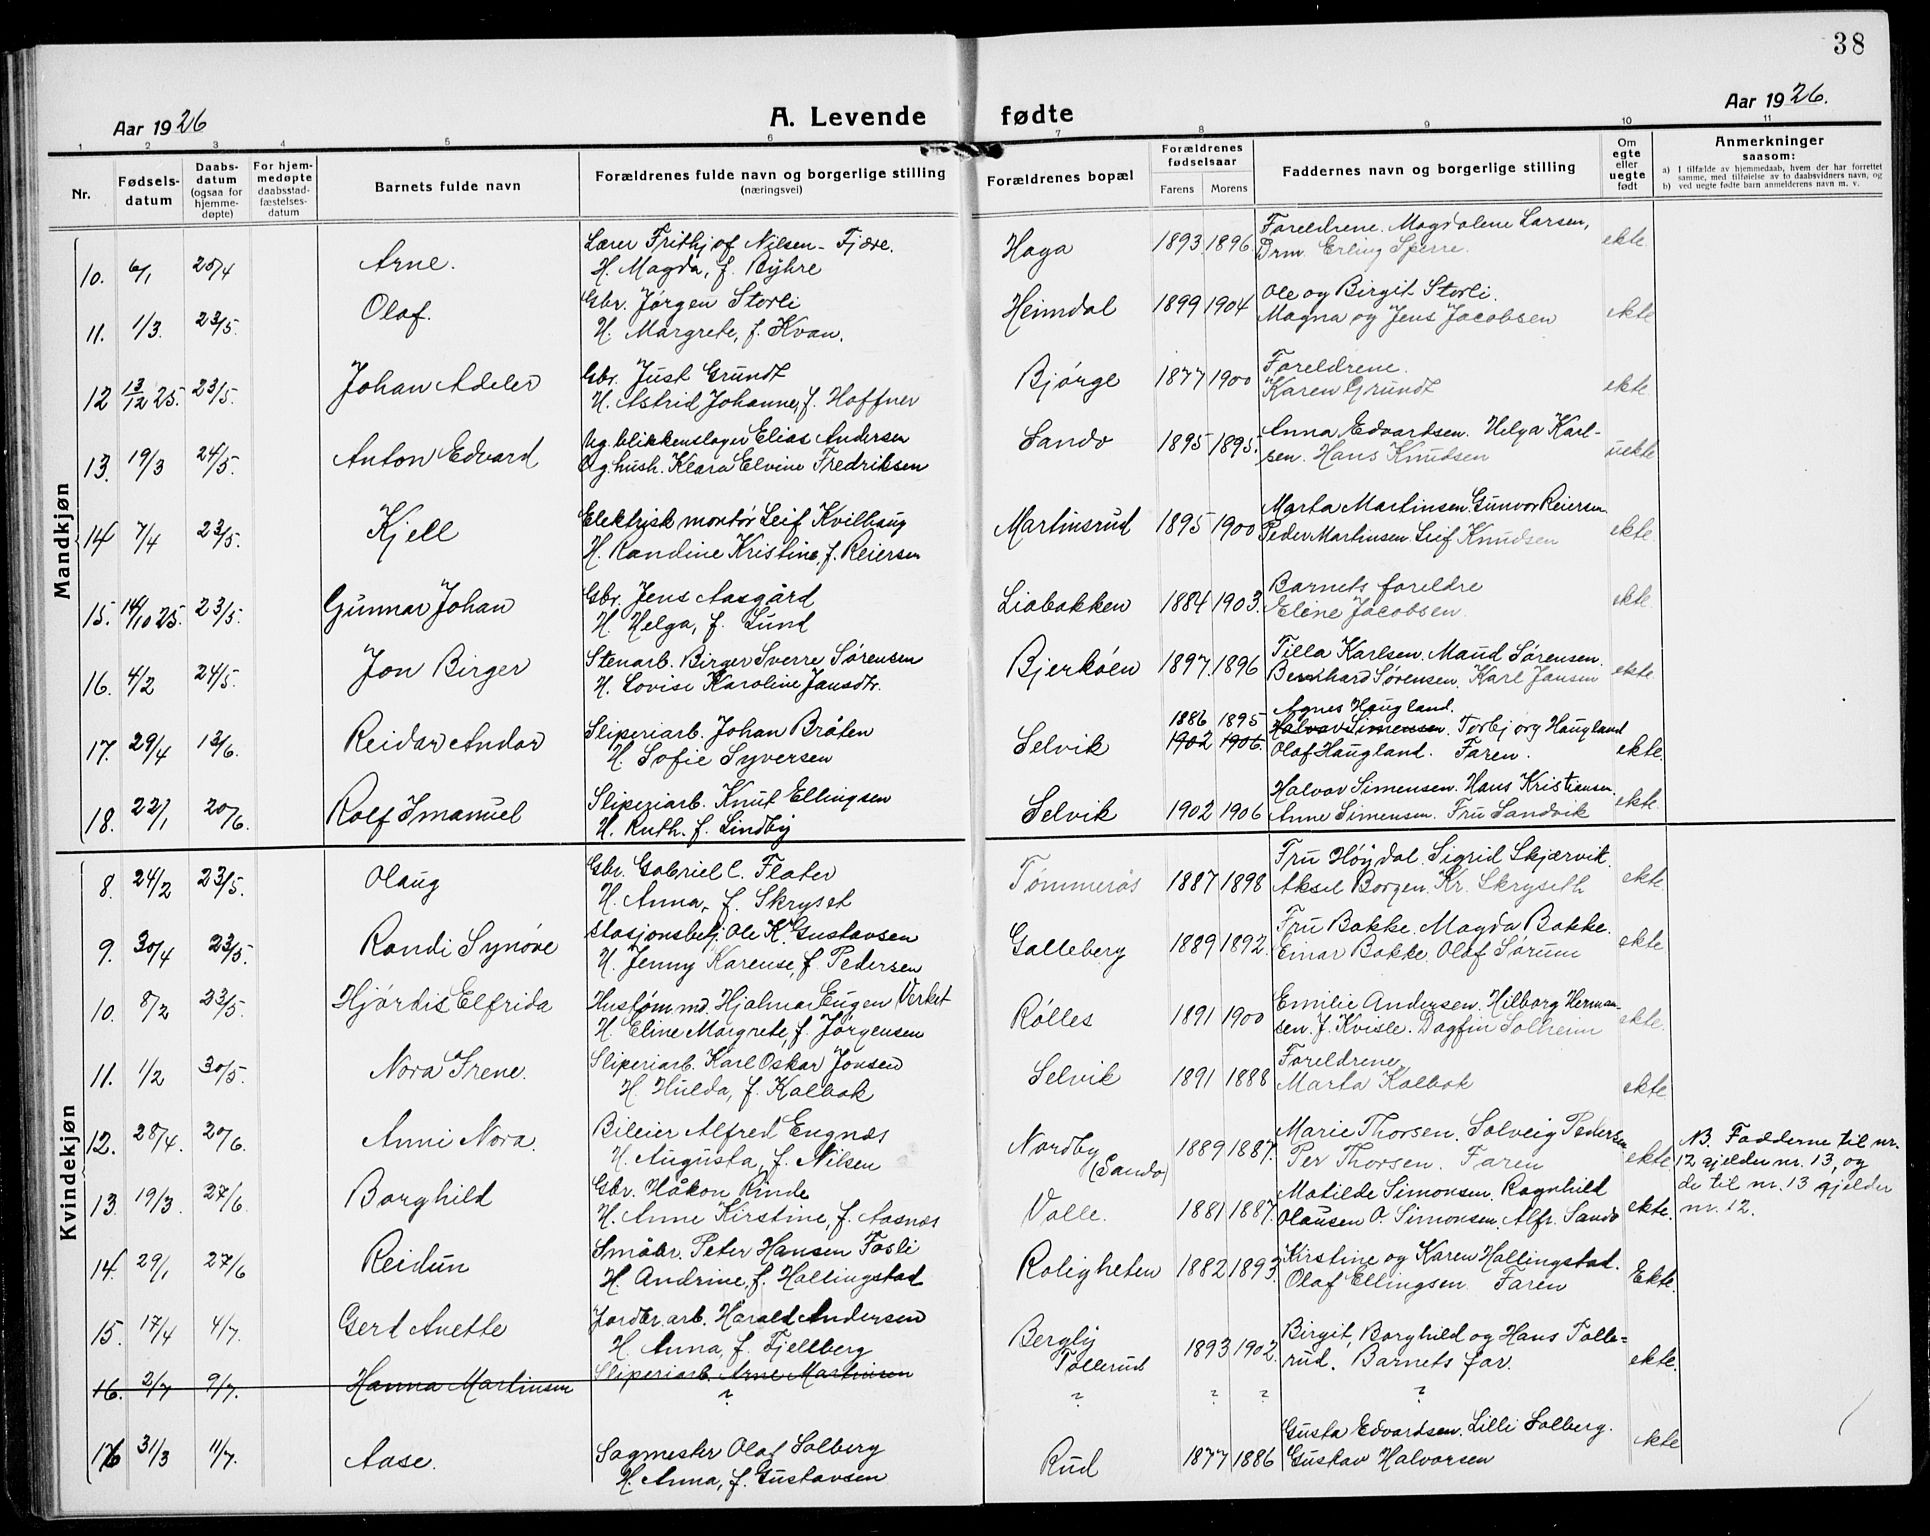 38
Aar 1926
A. Levende fødte
Aar 1926.
1 2 3 4 5 6 7 8 9 10 11
Nr.
Fødsels-
datum
Daabs-
datum
(ogsaa for
hjemme-
døpte)
For hjem-
medøpte
daabsstad-
fæstelses-
datum
Barnets fulde navn
Forældrenes fulde navn og borgerlige stilling
(næringsvei)
Forældrenes bopæl
Forældrenes
fødselsaar
Farens Morens
Faddernes navn og borgerlige stilling
Om
egte
eller
uegte
født
Anmerkninger
saasom:
a) I tilfælde av hjemmedaab, hvem der har forrettet
samme, med tilføielse av to daabsvidners navn, og
b) ved uegte fødte barn anmelderens navn m. v.
Mandkjøn
10. 6/1 25/4 Arne. Lærer Frithjof Nilsen-Fjære. Haga 1893 1896 Foreldrene. Magdalene Larsen, ekte
H. Magda, f. Byhre Drm. Erling Sperre.
11. 1/3. 23/5. Olaf. Gbr. Jørgen Storli Heimdal 1899 1904 Ole og Birgit Storli. ekte
H. Margrete, f. Kvan. Magna og Jens Jacobsen
12 13/12 25. 23/5. Johan Adeler Gbr. Just Grundt Bjørge 1877 1900 Foreldrene. ekte
H. Astrid Johanne, f. Hoffner Karen Grundt
13. 19/3 24/5. Anton Edvard Ug. blikkenslager Elias Andersen Sando 1895 1895. Anna Edvardsen. Helga Karl- uekte
Og hush. Klara Elvine Fredriksen sen. Hans Knudsen
14 7/4 23/5. Kjell Elektrisk montør Leif Kvilhaug Martinsrud 1895 1900 Marta Martinsen. Gunvor Reiersen ekte.
H. Randine Kristine, f. Reiersen Peder Martinsen. Leif Knudsen
15. 14/10 25. 23/5. Gunnar Johan Gbr. Jens Aasgård Liabakken 1884 1903. Barnets foreldre ekte.
H. Helga, f. Lund Elene Jacobsen.
16. 4/2 24/5. Jon Birger Stenarb. Birger Sverre Sørensen Bjerkøen 1897. 1896 Tilla Karlsen. Maud Sørensen. ekte
H. Lovise Karoline Jansdtr. Bernhard Sørensen. Karl Jansen
17. 29/4 13/6. Reidar Andor Sliperiarb. Johan Bråten Selvik 1886 1895 Agnes Haugland. ekte.
H. Sofie Syversen 1902 1906. Halvor Simensen. Torbjørg Haugland
Olaf Haugland. Faren.
18. 22/1 20/6. Rolf Imanuel Sliperiarb. Knut Ellingsen Selvik 1902 1906 Halvor Simensen. Hans Kristiansen. ekte.
H. Ruth. f. Lindby Anne Simensen. Fru Sandvik
Kvindekjøn
8. 24/2 23/5. Olaug Gbr. Gabriel C. Flater Tømmerås 1887 1898 Fru Høydal. Sigrid Skjærvik. ekte.
H. Anna, f. Skryset Aksel Borgen. Kr. Skryseth
9. 30/4 23/5. Randi Synøve Stasjonsbetj. Ole K. Gustavsen Galleberg 1889 1892. Fru Bakke. Magda Bakke. ekte
H. Jenny Karense, f. Pedersen Einar Bakke. Olaf Sørum
10. 8/2 23/5. Hjørdis Elfrida Hustømmd. Hjalmar Eugen Verket Rølles 1891 1900 Emilie Andersen. Hilborg Herman- ekte.
H. Eline Margrete, f. Jørgensen sen. J. Kvisle. Dagfin Solheim
11. 1/2 30/5. Nora Irene. Sliperiarb. Karl Oskar Jonsen Selvik 1891 1888 Foreldrene ekte
H. Hulda, f. Kalbak Marta Kalbak
12. 28/4. 20/6. Anni Nora. Bileier Alfred Engnæs Nordby 1889 1887. Marie Thorsen. Solveig Pedersen ekte NB. Fadderne til nr.
H. Augusta, f. Nilsen (Sando) Per Thorsen. Faren 12 gjelder nr. 13, og
13. 19/3 27/6. Borghild Gbr. Håkon Rinde Valle. 1881 1887. Matilde Simonsen. Ragnhild ekte. de til nr. 13 gjelder
H. Anne Kirstine, f. Aasnæs Olausen O. Simonsen, Alfr. Sando nr. 12.
14. 29/1 27/6 Reidun Småbr. Peter Hansen Fosli Roligheten 1882 1893. Kirstine og Karen Hallingstad. Ekte.
H. Andrine, f. Hallingstad Olaf Ellingsen. Faren
15. 17/4 4/7. Gerd Anette Jordbr. arb. Harald Andersen Bergly 1893 1902. Birgit, Borghild og Hans Tolle- ekte.
H. Anna, f. Fjellberg Tollerud rud. Barnets far.
16. 2/7 9/7. Hanna Martinsen Sliperiarb. Arne Martinsen
? ? ? ? ?
16 31/3 11/7. Aase. Sagmester Olaf Solberg Rud 1877 1886 Gusta Edvardsen. Lilli Solberg. ekte
H. Anna, f. Gustavsen Gustav Halvorsen